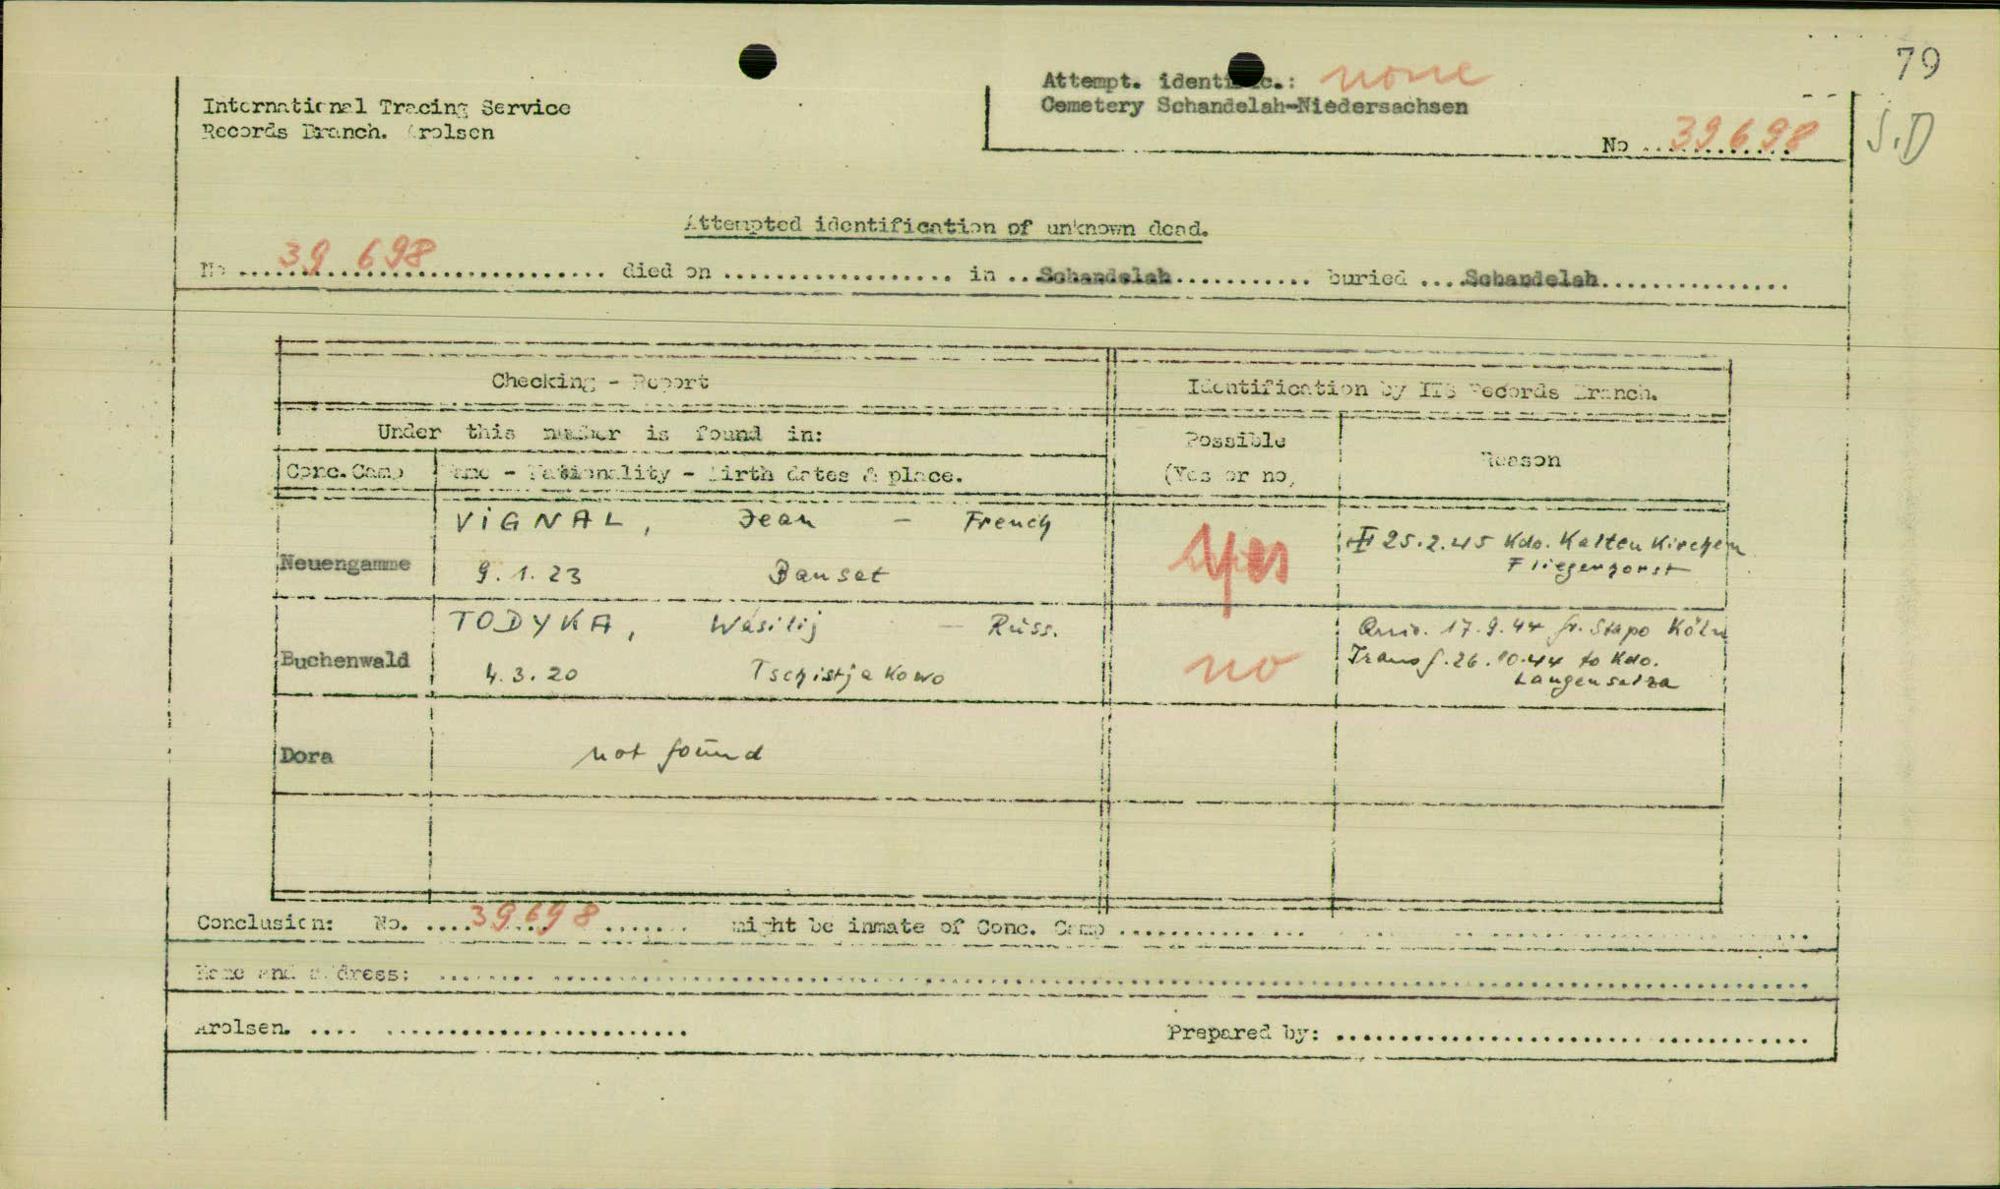 79
Attempt. identific.: none
International Tracing Service
Cemetery Schandelah-Niedersachsen
Records Branch. Arolsen
No ..39698..
S.D
Attempted identification of unknown dead.
No ..39 698.. died on .................. in ..Schandelah........... buried ....Schandelah...............
Checking - Report
Identification by ITS Records Branch.
Under this number is found in:
Possible
(Yes or no)
Reason
Conc.Camp
Name - Nationality - Birth dates & place.
VIGNAL, Jean - French
Neuengamme
9.1.23 Banset
yes
25.2.45 Kdo. Kaltenkirchen
Fliegerhorst
TODYKA, Wasilij - Russ.
Buchenwald
4.3.20 Tschistjakowo
no
17.9.44 fr. Stapo Köln
Transf. 26.10.44 to Kdo.
Langensalza
Dora
not found
Conclusion: No. ....39698....... might be inmate of Conc. Camp ..............
Name and address: ........
Arolsen. .... ........................
Prepared by: .....................................